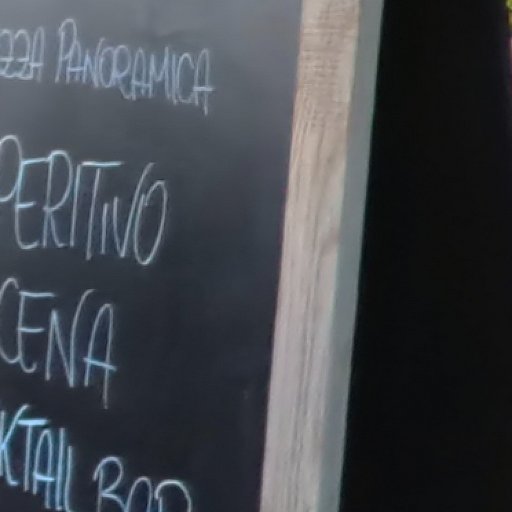 ZZA PANORAMICA
PERITIVO
CENA
KTAIL BAR